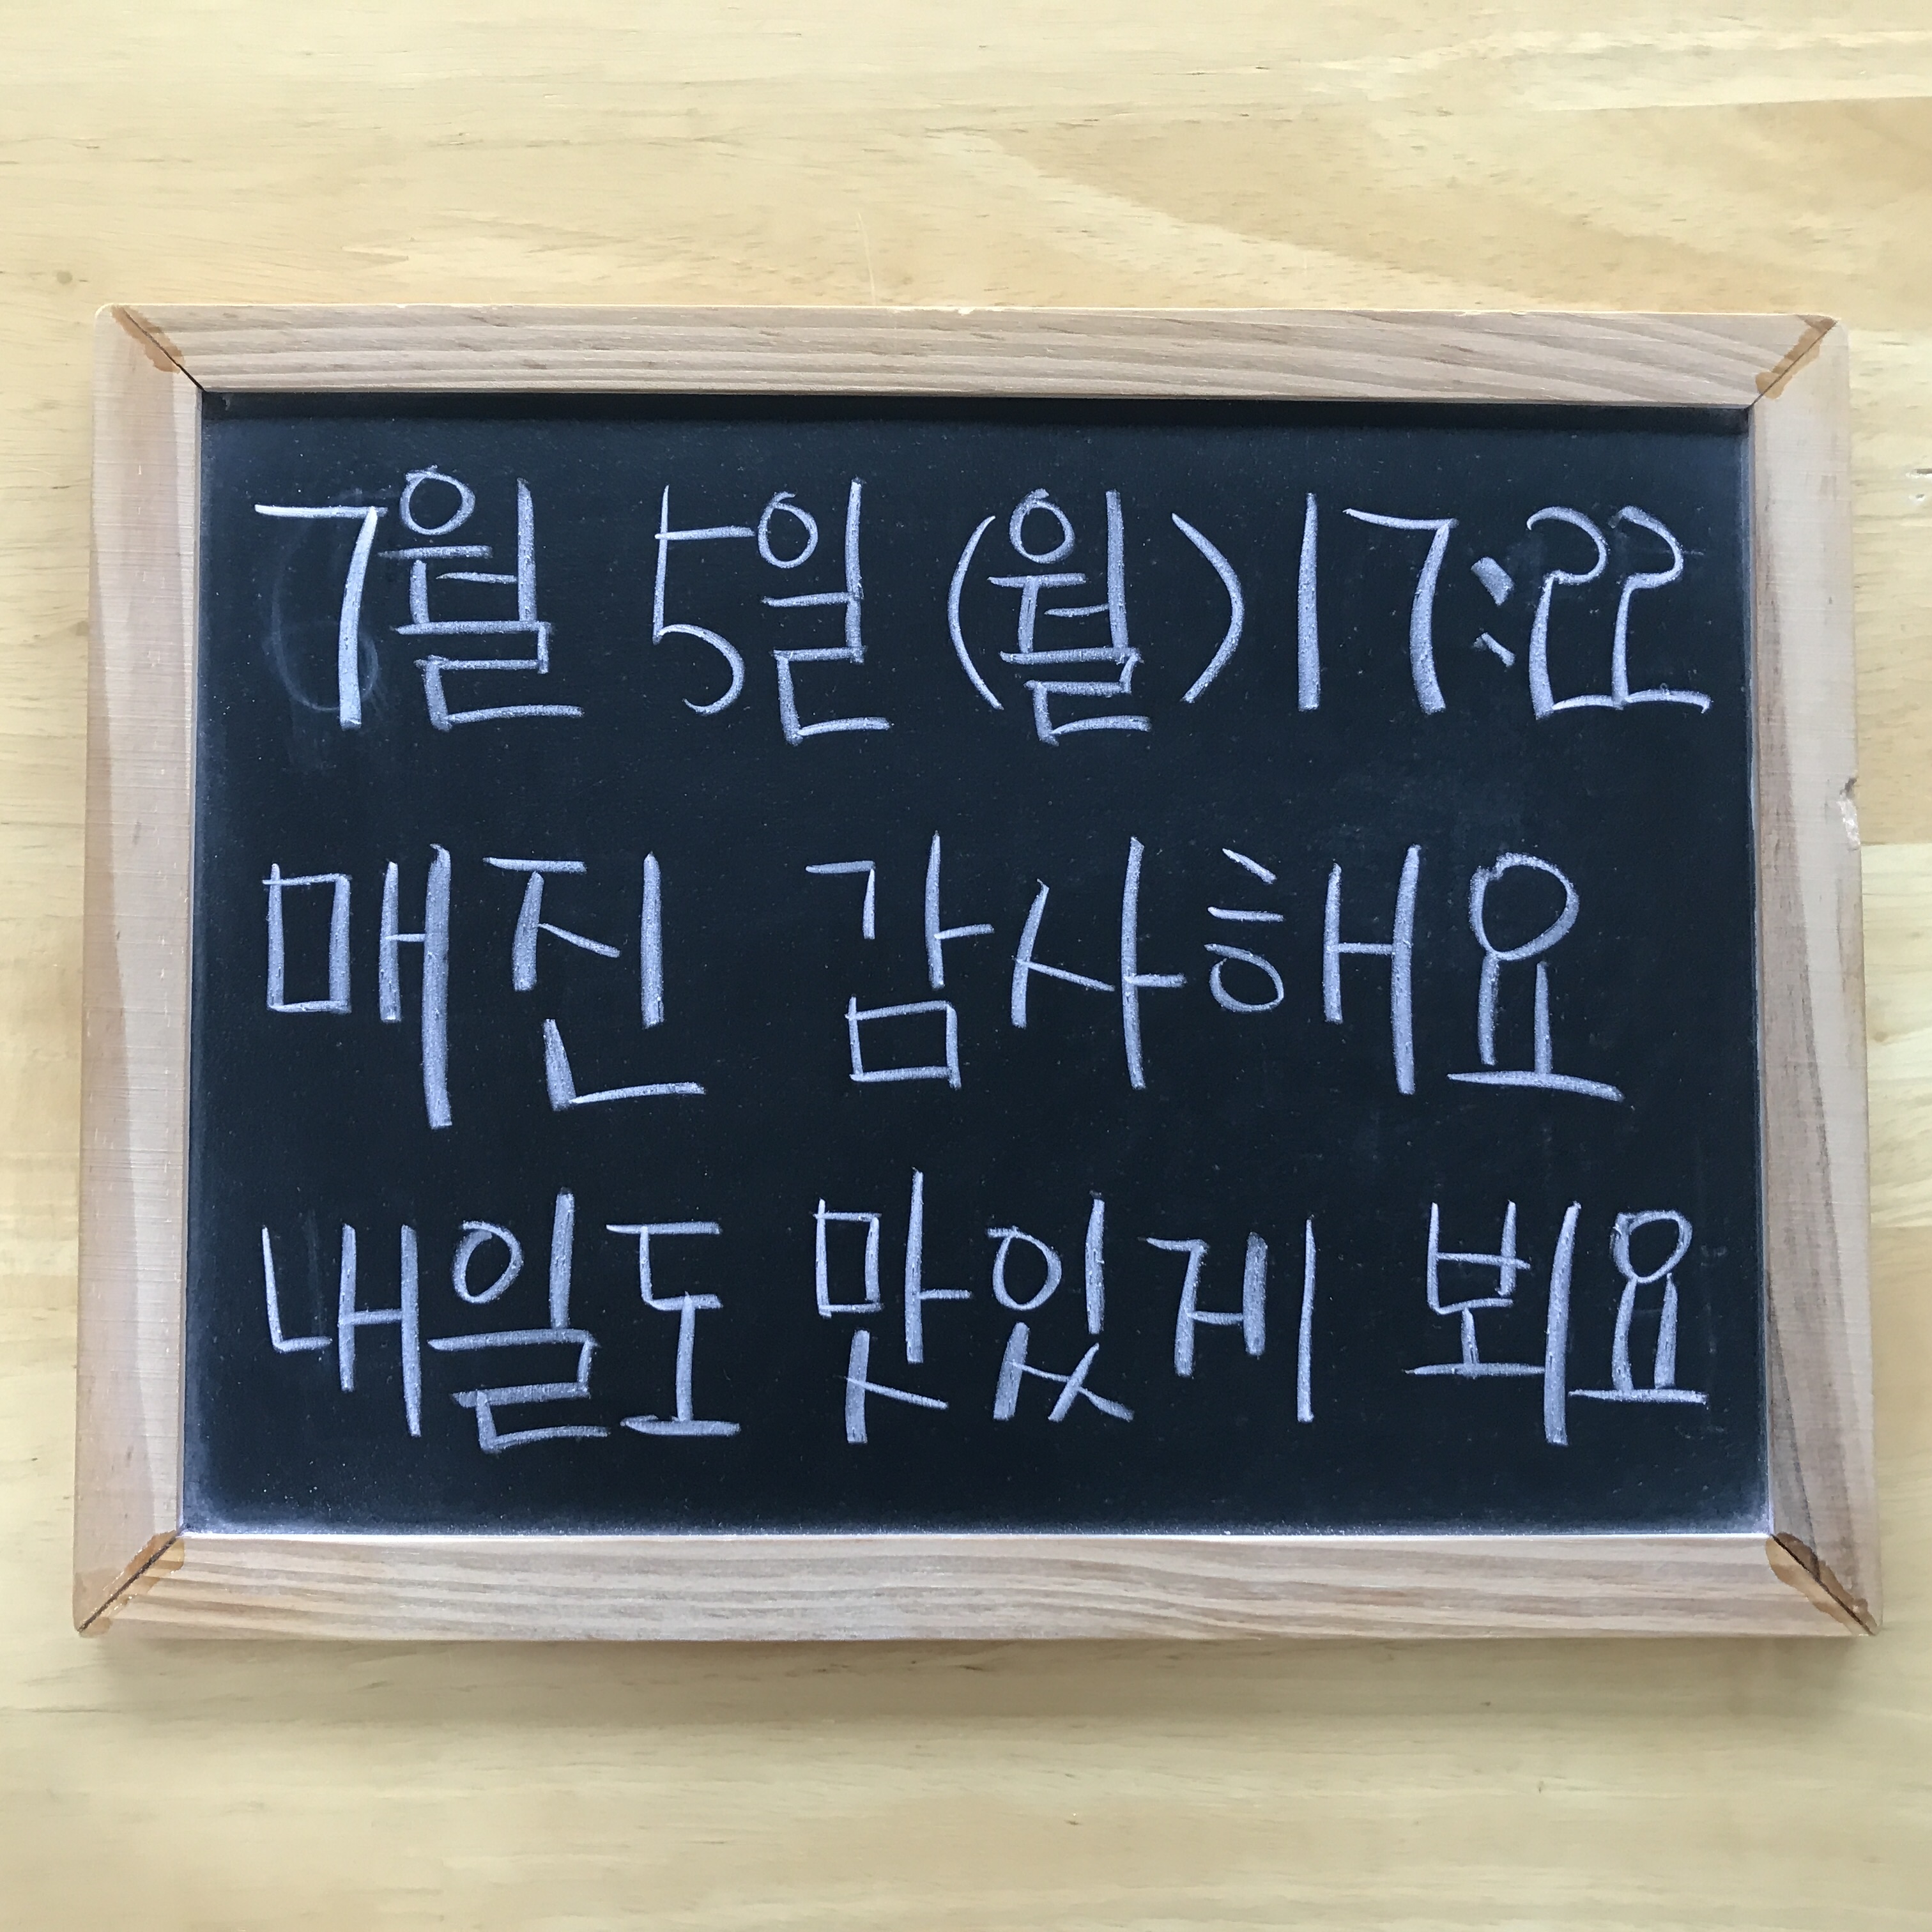 7월 5일 (월) 17:22
매진 감사해요
내일도 맛있게 뵈요